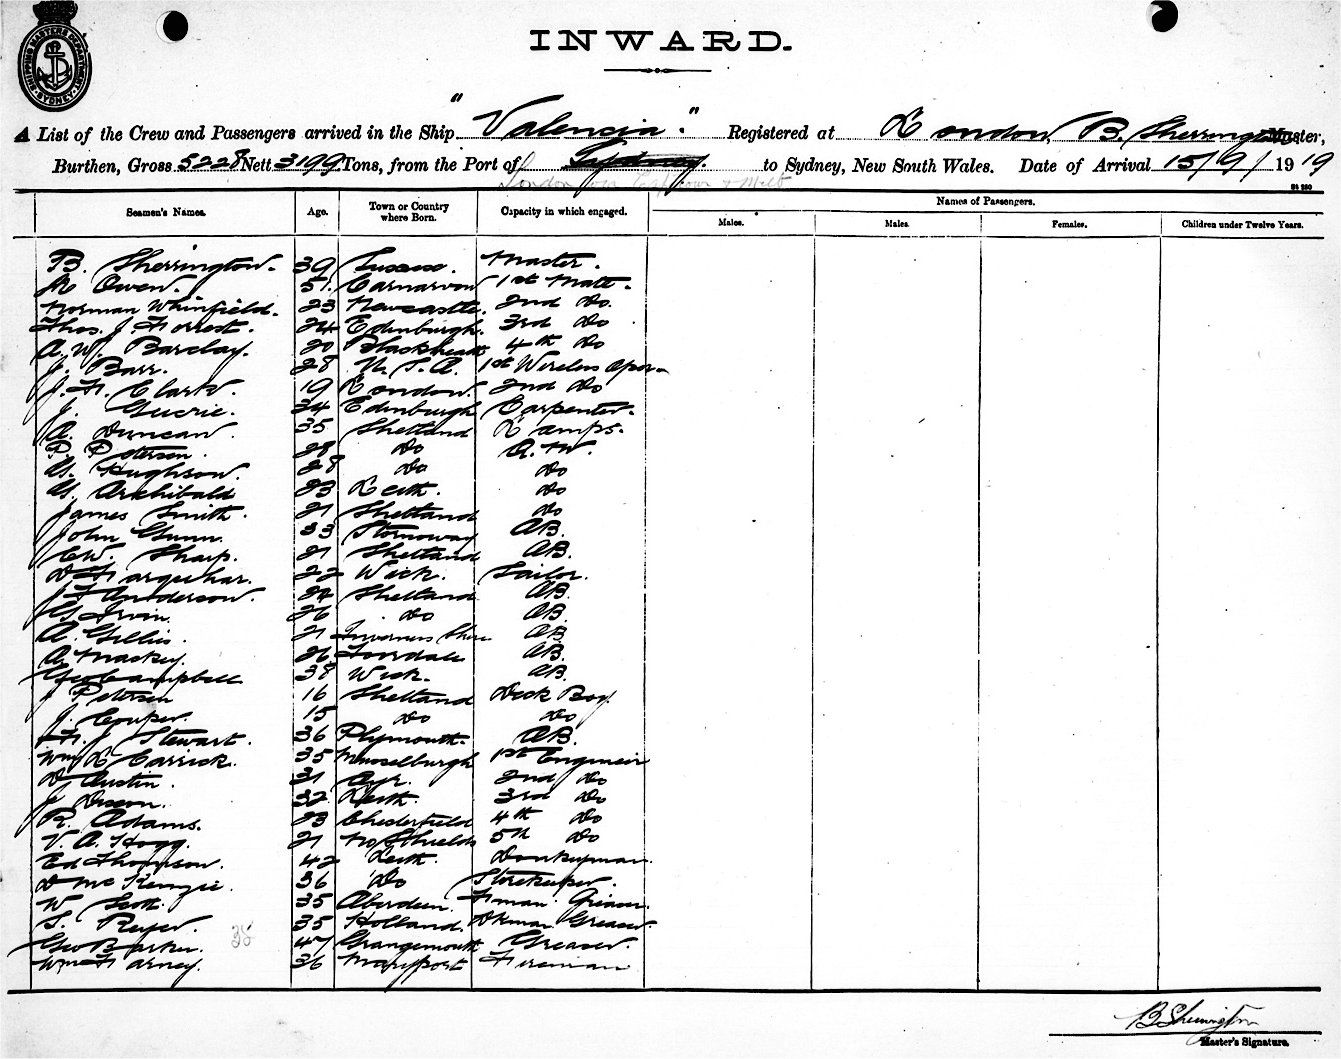 SHIPPING MASTERS DEPARTMENT
SYDNEY
INWARD.
A List of the Crew and Passengers arrived in the Ship "Valencia." Registered at London, B. Sherrington Master,
Burthen, Gross 5228 Nett 3199 Tons, from the Port of Sydney. to Sydney, New South Wales. Date of Arrival 15/9/1919
London
Seamen's Names. Age. Town or Country where Born. Capacity in which engaged. Names of Passengers.
Males. Males. Females. Children under Twelve Years.
B. Sherrington. 39 Sussex. Master.
Owen. 51. Carnarvon 1st Mate.
Norman Whinfield. 23 Newcastle. 2nd Do.
Thos. J. Forrest. 24 Edinburgh. 3rd Do
A. W. Barclay. 20 Blackheath 4th Do
J. Barr. 28 U. S. A. 1st Wireless Oper.
J. H. Clark. 19 London. 2nd Do
J. Guerie. 34 Edinburgh Carpenter.
A. Duncan. 35 Shetland Lamps.
P. Peterson. 28 Do
Hughson. 28 Do Do
Archibald 23 Leith. Do
James Smith. 21 Shetland Do
John Gunn. 33 Stornoway AB.
Sharp. 21 Shetland AB.
D Farquhar. 22 Wick. Sailor.
J F Anderson. 24 Shetland AB.
G Irvin. 26 Do AB.
A. Gillies. 21 Inverness Shire AB.
A. Mackey. 26 AB.
Geo Campbell 38 Wick. AB.
J Petersen 16 Shetland Deck Boy
J. Couper. 15 Do Do
Stewart. 36 Plymouth. AB.
Wm L Carrick. 35 Musselburgh 1st Engineer
D Austin. 31 Ayr. 2nd Do
J Dixon. 32 Leith. 3rd Do
R. Adams. 23 Chesterfield 4th Do
V. A. Hogg. 21 No Shields 5th Do
Ed Thomson. 42 Leith. Donkeyman.
D McKenzie. 36 Do Storekeeper.
W Scott. 35 Aberdeen. F'man Greaser.
35 Holland. Dkman Greaser
Geo Barker. 47 Grangemouth Greaser.
Wm Farney. 36 Maryport Fireman
35
B Sherrington
Master's Signature.